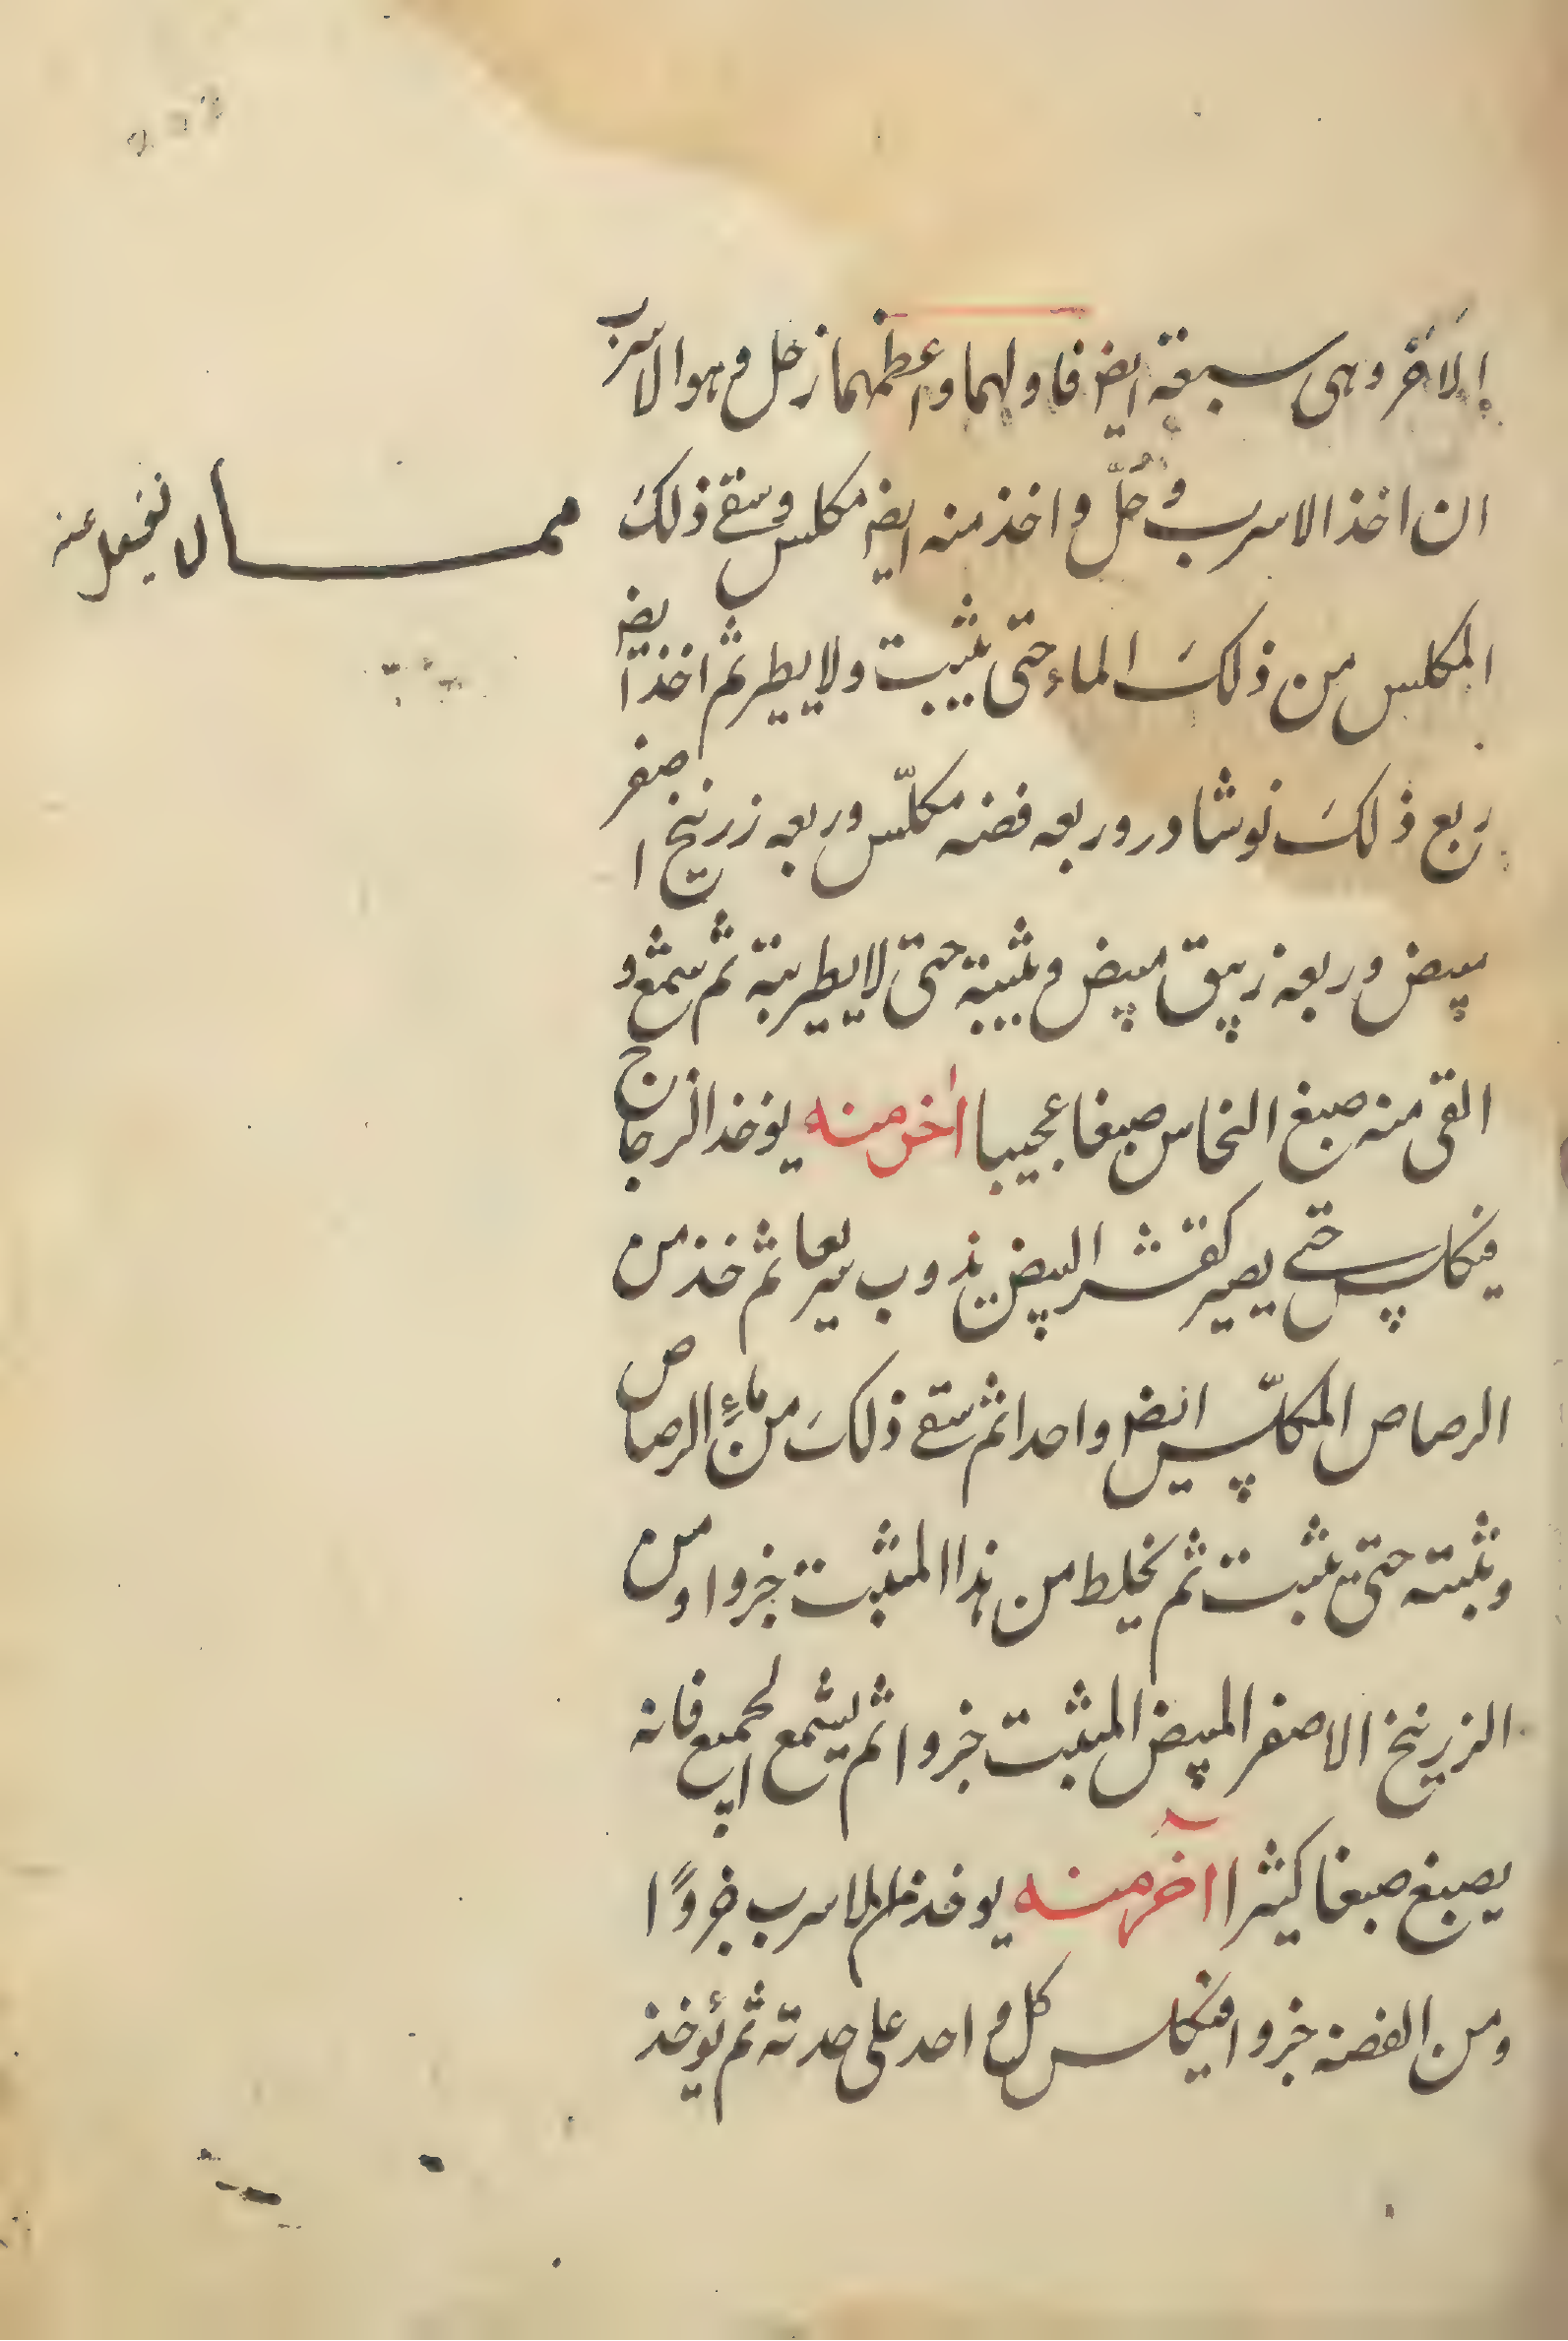 الاخر وهى سبعة ايض فاولهما واعظمهما زحل وهو الاسرب
ان اخذ الاسرب وحُلَّ واخذ منه ايض مكلس وسقے ذلكَ
ممـــا لا نغفل عنه
المكلس من ذلكَ الماء حتى يثبت ولا يطير ثم اخذ ايض
ربع ذلكَ نوشادر وربعه فضه مكلّس وربعه زرنيخ اصفر
مبيض وربعه زيبق مبيض ويثبته حتى لا يطير بتة ثم شمع و
القى منه صبغ النحاس صبغا عجيبا اخر منه يؤخذ الزجاج
فيكلس حتے يصير كقشر البيض يذوب سريعا ثم خذ من
الرصاص المكلّس ايض واحدا ثم سقے ذلكَ من ماءِ الرصاص
وثبته حتى يثبت ثم يخلط من هذا المثبت جزوا ومن
الزرنيخ الاصفر المبيض المثبت جزوا ثم يشمع الجميع فانه
يصبغ صبغا كثيرا آخر منه يوخذ من الاسرب جزوًا
ومن الفضه جزوا فيكلس كل واحد على حدته ثم يؤخذ